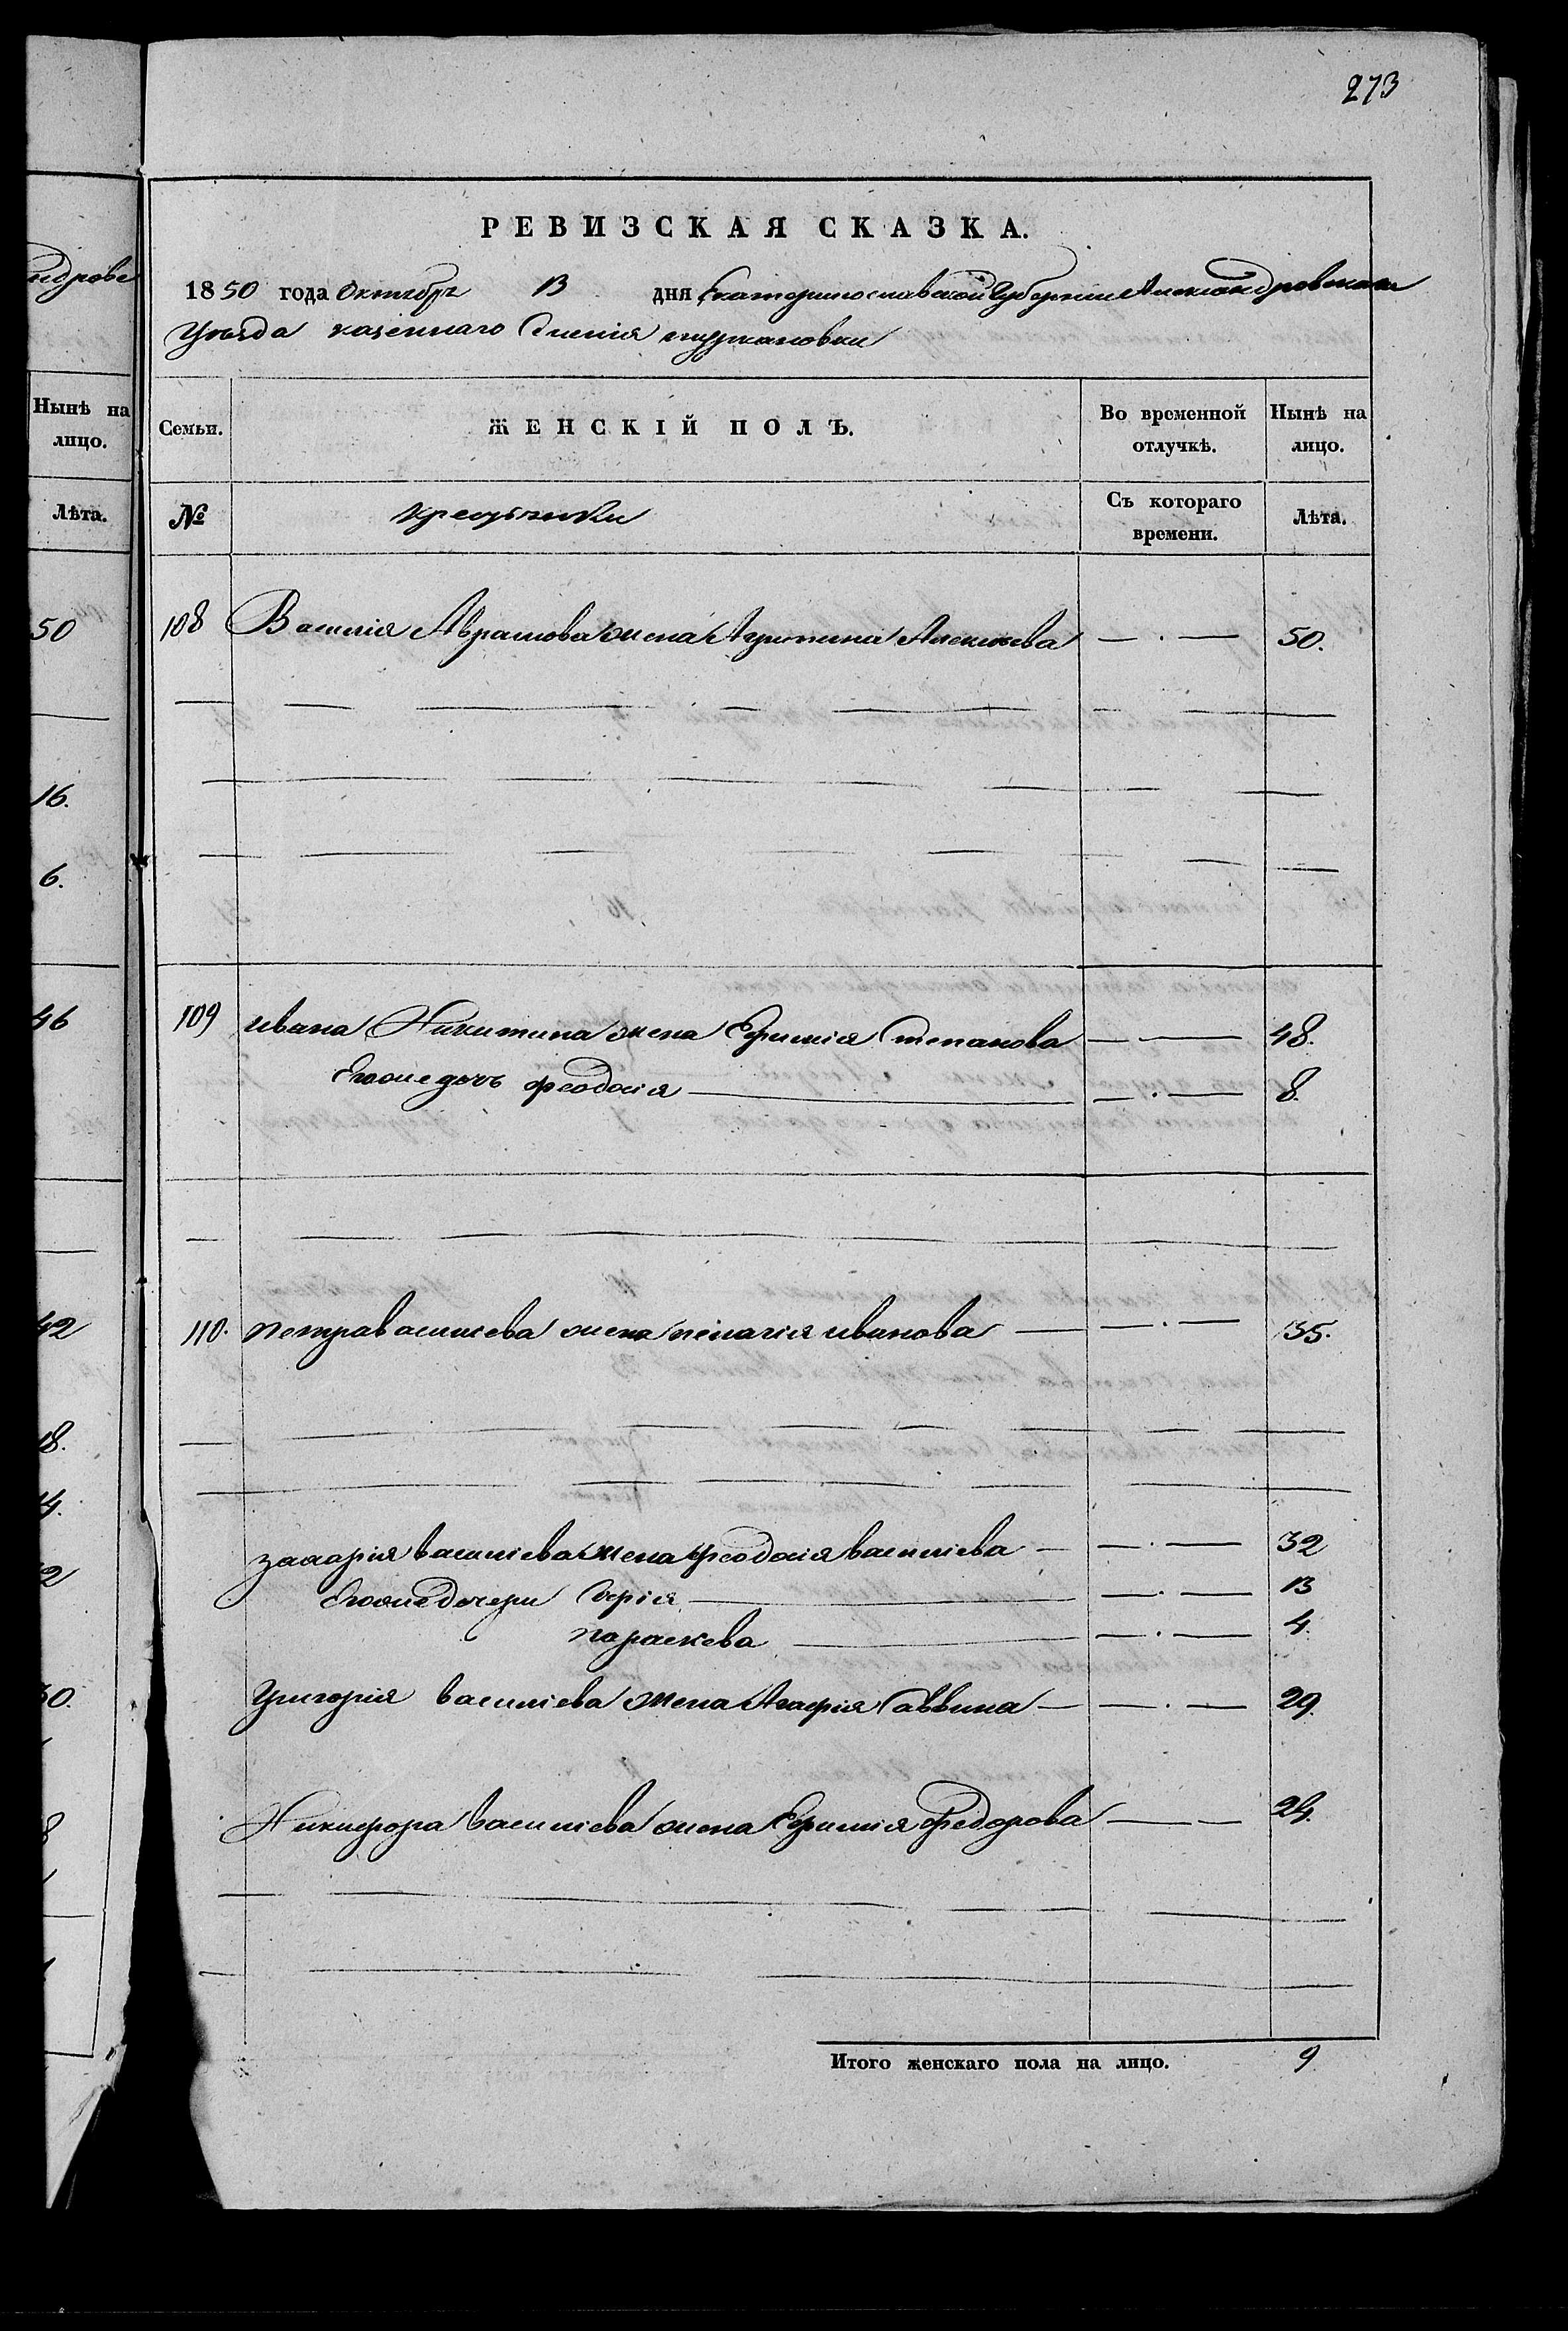 273
РЕВИЗСКАЯ СКАЗКА.
1850 года Октября 13 дня Екатеринославской Губерніи Александровскаго
Уезда казеннаго Селенія
Семьи. ЖЕНСКІЙ ПОЛЪ. Во временной отлучкѣ. Нынѣ на лицо.
№ Съ котораго времени. Лѣта.
108 Василія Аврамова жена Агрипина Алексѣева — . — 50.
109 ивана Никитина жена Ефимія Степанова — . — 48.
Егоже дочь феодосія — . — 8.
110. петра василіева жена пелагія иванова — . — 35.
захарія василіева жена феодосія василіева — . — 32
Егоже дочери — . — 13
параскева — . — 4.
Григорія василіева жена Агафія Саввина — . — 29.
Никифора василіева жена Ефимія Федорова — — 24.
Итого женскаго пола на лицо. 9
Нынѣ на лицо.
Лѣта.
50
16.
6.
46
42
18.